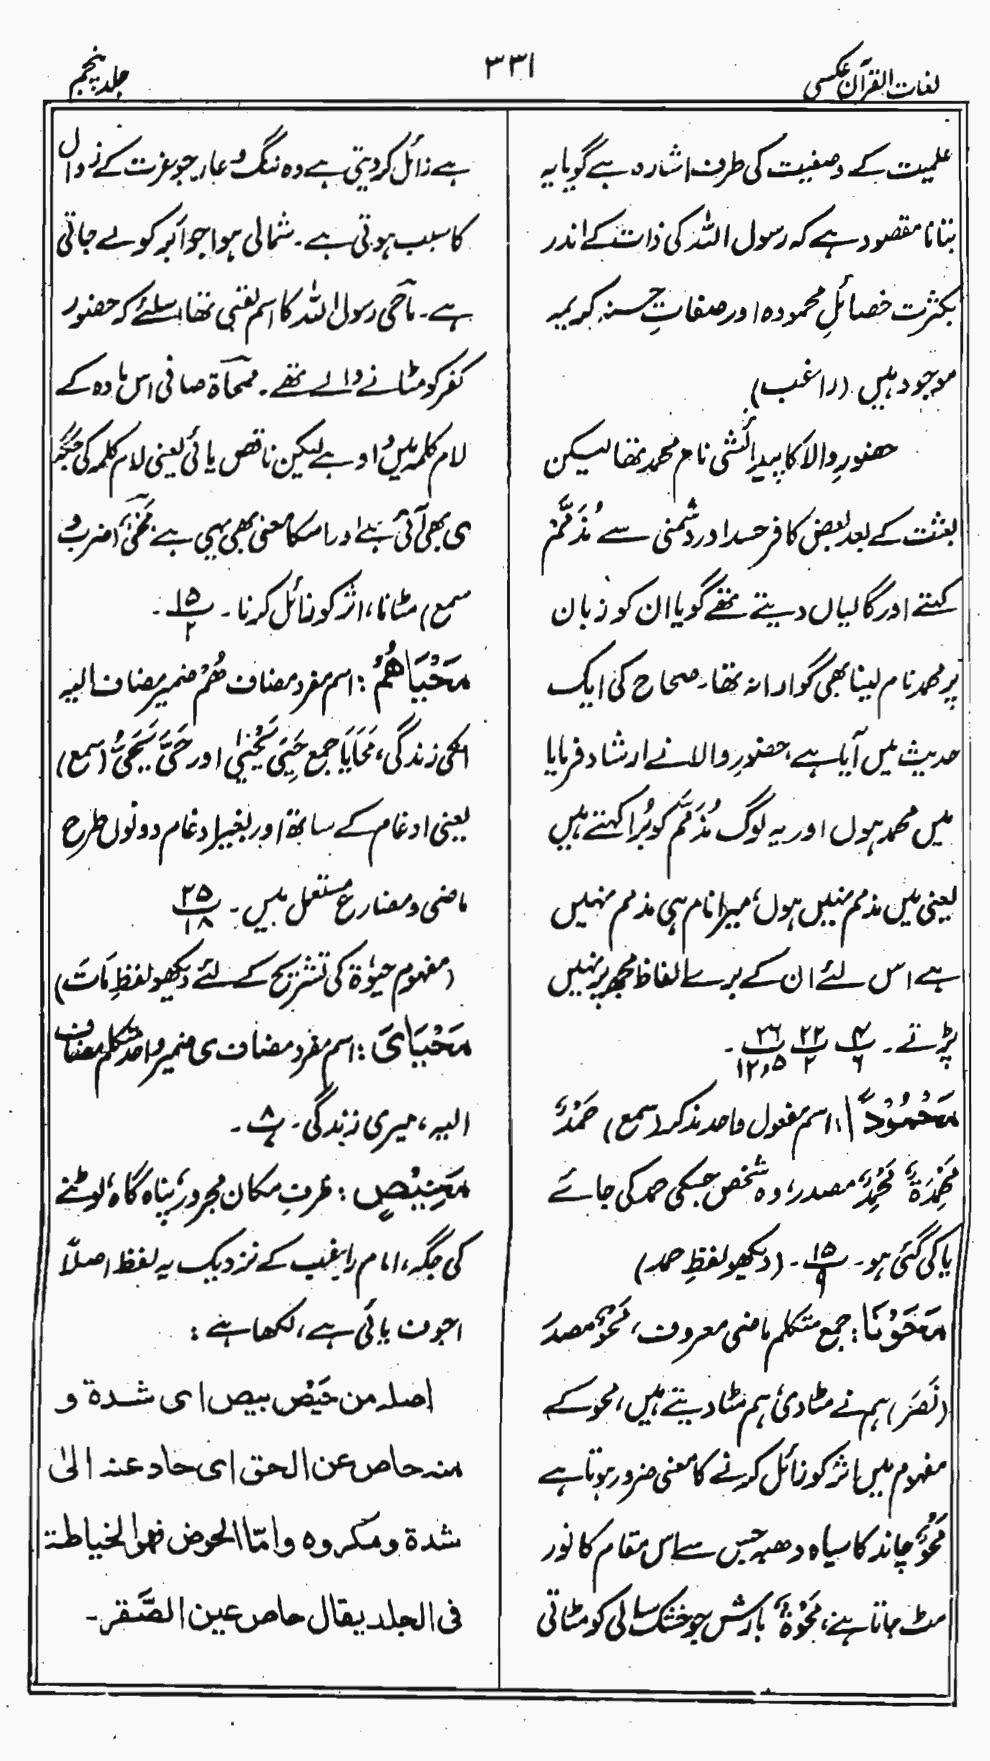 لغات القرآن عکسی
۳۳۱
جلد پنجم
علمیت کے وصفیت کی طرف اشارہ ہے گویا یہ
بتانا مقصود ہے کہ رسول اللہ کی ذات کے اندر
بکثرت خصائلِ محمودہ اور صفاتِ حسنہ کریمہ
موجود ہیں (راغب)
حضورِ والا کا پیدائشی نام محمد تھا لیکن
بعثت کے بعد بعض کافر حسد اور دشمنی سے مُذَمَّمْ
کہتے اور گالیاں دیتے تھے گویا ان کو زبان
پر محمد نام لینا بھی گوارا نہ تھا۔ صحاح کی ایک
حدیث میں آیا ہے، حضورِ والا نے ارشاد فرمایا
میں محمد ہوں اور یہ لوگ مُذَمَّم کو بُرا کہتے ہیں
یعنی میں مذمم نہیں ہوں، میرا نام ہی مذمم نہیں
ہے اس لئے ان کے برے الفاظ مجھ پر نہیں
پڑتے۔ پ۴/۶ پ۲۲/۲ پ۲۶/۱۲،۵ ۔
مَحْمُوْدًا: اسم مفعول واحد مذکر (سمع) حَمْدٌ
مَحْمِدَۃٌ مَحْمِدٌ مصدر، وہ شخص جسکی حمد کی جائے
یا کی گئی ہو۔ پ۱۵/۹ ۔ (دیکھو لفظِ حمد)
مَحَوْنَا: جمع متکلم ماضی معروف، مَحْوٌ مصدر
(نَصَرَ) ہم نے مٹا دی، ہم مٹا دیتے ہیں، محو کے
مفہوم میں اثر کو زائل کرنے کا معنی ضرور ہوتا ہے
مَحْوٌ چاند کا سیاہ دھبہ جس سے اس مقام کا نور
مٹ جاتا ہے، مَحْوَۃٌ بارش جو خشک سالی کو مٹاتی
ہے زائل کر دیتی ہے وہ ننگ و عار جو عزت کے زوال
کا سبب ہوتی ہے۔ شمالی ہوا جو ابر کو لے جاتی
ہے۔ مَاحِی رسول اللہ کا اسم لقبی تھا اسلئے کہ حضور
کفر کو مٹانے والے تھے۔ ممحاۃ صافی اس مادہ کے
لام کلمہ میں واو ہے لیکن ناقص یائی یعنی لام کلمہ کی جگہ
ی بھی آئی ہے اور اسکا معنی بھی یہی ہے مَحْیٌ (ضرب و
سمع) مٹانا، اثر کو زائل کرنا۔ پ۱۵/۲ ۔
مَحْیَاھُمْ: اسم مفرد مضاف ھُمْ ضمیر مضاف الیہ
انکی زندگی، مَحَایَا جمع حَیِیَ یَحْیٰی اور حَیَّ یَحَیُّ (سمع)
یعنی ادغام کے ساتھ اور بغیر ادغام دونوں طرح
ماضی و مضارع مستعمل ہیں۔ پ۲۵/۱۸
(مفہوم حیوٰۃ کی تشریح کے لئے دیکھو لفظِ مَاتَ)
مَحْیَایَ: اسم مفرد مضاف ی ضمیر واحد متکلم مضاف
الیہ، میری زندگی۔ پ۸/۷ ۔
مَحِیْصٍ: ظرفِ مکان مجرور، پناہ گاہ، لوٹنے
کی جگہ، امام راغب کے نزدیک یہ لفظ اصلاً
اجوف یائی ہے، لکھا ہے:
اصلہ من حَیْصَ بیص ای شدۃ و
منہ حاص عن الحق ای حاد عنہ الیٰ
شدۃ ومکروہ وامّا الحوض فھو الخیاطۃ
فی الجلد یقال حاص عین الصَّقر۔